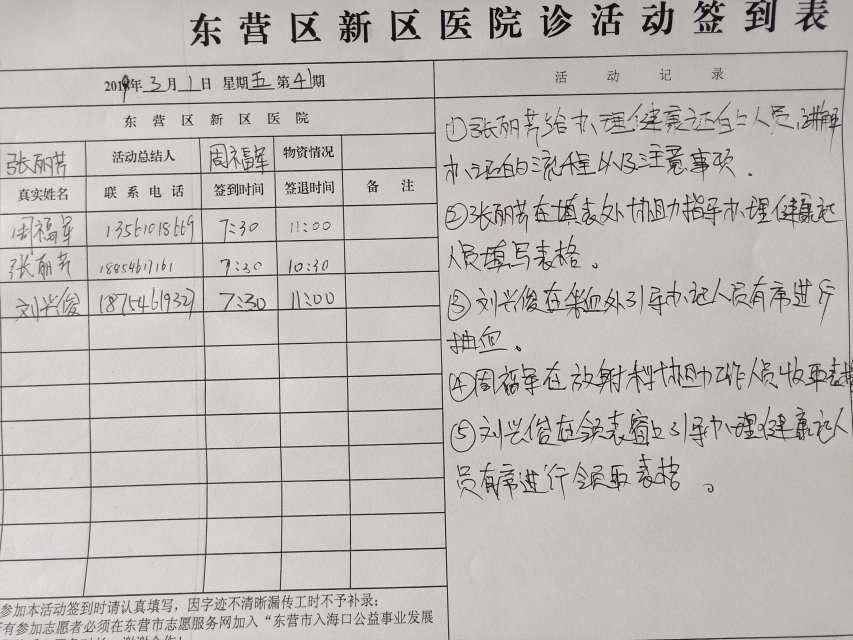 东营区新区医院诊活动签到表
2019年3月1日 星期五 第41期
活动记录
东营区新区医院
张丽芳 活动总结人 周福军 物资情况
真实姓名 联系电话 签到时间 签退时间 备注
周福军 13561018669 7:30 11:00
张丽芳 18854617161 7:30 10:30
刘兴俊 18754619327 7:30 11:00
①张丽芳给办理健康证的人员讲解
办证的流程以及注意事项.
②张丽芳在填表处协助指导办理健康证
人员填写表格。
③刘兴俊在采血处引导办证人员有序进行
抽血。
④周福军在放射科协助工作人员收取表格
⑤刘兴俊在领表窗口引导办理健康证人
员有序进行领取表格。
参加本活动签到时请认真填写，因字迹不清晰漏传工时不予补录；
有参加志愿者必须在东营市志愿服务网加入“东营市入海口公益事业发展